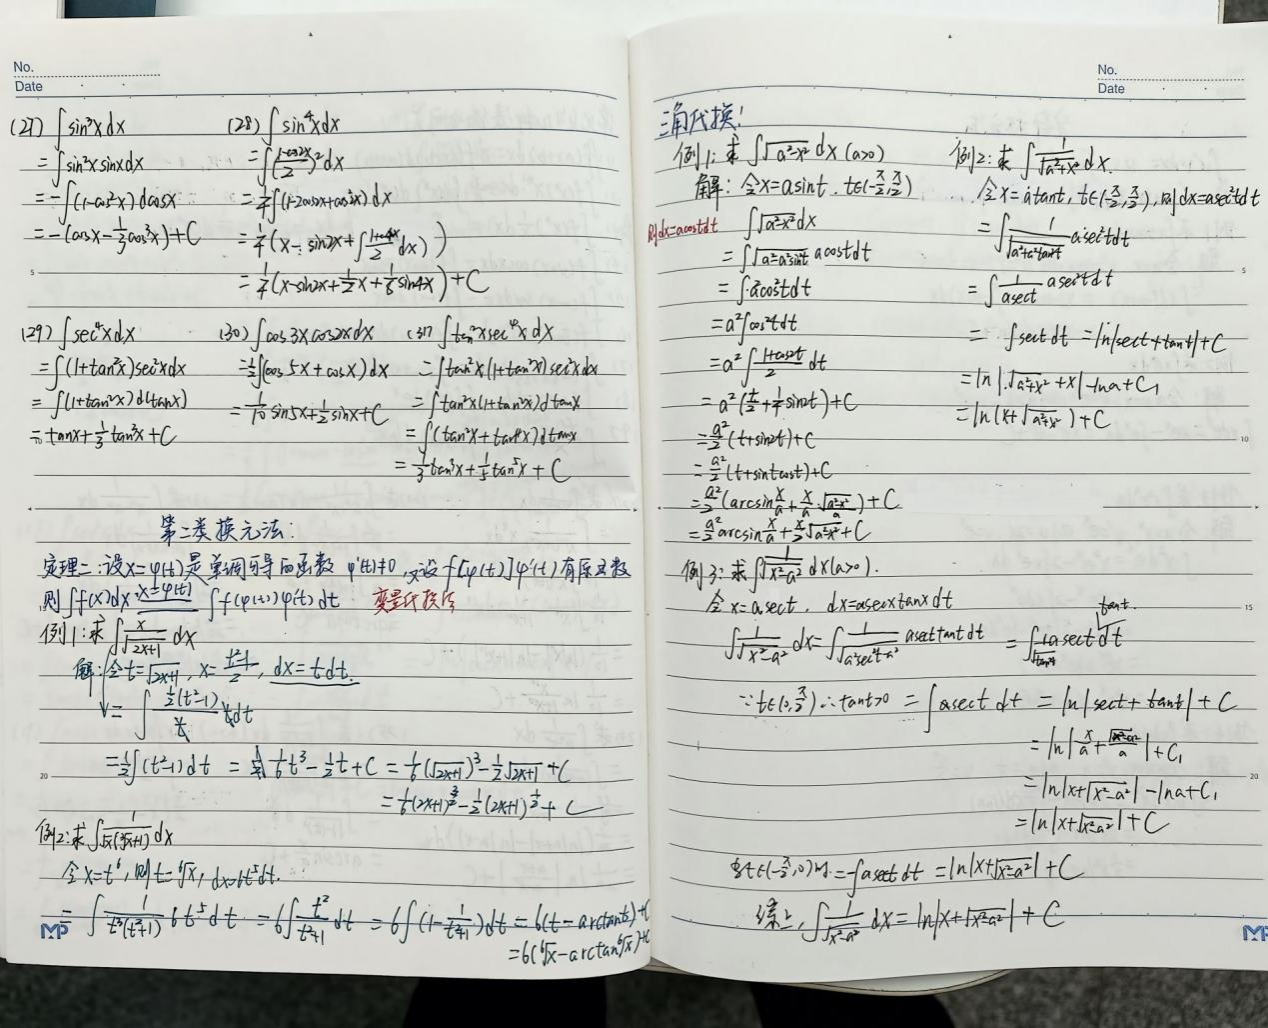 No.
Date
(27) ∫sin³xdx
= ∫sin²x sinxdx
= -∫(1-cos²x)dcosx
= -(cosx-1/3cos³x)+C
(28) ∫sin⁴xdx
= ∫(1-cos2x/2)²dx
= 1/4∫(1-2cos2x+cos²2x)dx
= 1/4(x-sin2x+∫1+cos4x/2 dx)
= 1/4(x-sin2x+1/2x+1/8sin4x)+C
(29) ∫sec⁴xdx
= ∫(1+tan²x)sec²xdx
= ∫(1+tan²x)d(tanx)
= tanx+1/3tan³x+C
(30) ∫cos3xcos2xdx
= 1/2∫(cos5x+cosx)dx
= 1/10sin5x+1/2sinx+C
(31) ∫tan²xsec⁴xdx
= ∫tan²x(1+tan²x)sec²xdx
= ∫tan²x(1+tan²x)dtanx
= ∫(tan²x+tan⁴x)dtanx
= 1/3tan³x+1/5tan⁵x+C
第二类换元法:
定理二:设x=φ(t)是单调可导的函数 φ'(t)≠0 又设f[φ(t)]φ'(t)有原函数
则∫f(x)dx x=φ(t) ∫f(φ(t))φ'(t)dt 变量代换法
例1:求∫x/√(2x+1) dx
解:令t=√(2x+1), x=(t²-1)/2, dx=tdt.
= ∫ 1/2(t²-1)/t tdt
= 1/2∫(t²-1)dt = 1/6t³-1/2t+C = 1/6(√(2x+1))³-1/2√(2x+1)+C
= 1/6(2x+1)^(3/2)-1/2(2x+1)^(1/2)+C
例2:求∫1/(√x(³√x+1))dx
令x=t⁶,则t=⁶√x, dx=6t⁵dt.
= ∫1/(t³(t²+1)) 6t⁵dt = 6∫t²/(t²+1)dt = 6∫(1-1/(t²+1))dt = 6(t-arctant)+C
= 6(⁶√x-arctan⁶√x)+C
MP
No.
Date
三角代换!
例1:求∫√(a²-x²)dx(a>0)
解:令x=asint. t∈(-π/2,π/2)
则dx=acostdt ∫√(a²-x²)dx
= ∫√(a²-a²sin²t) acostdt
= ∫a²cos²tdt
= a²∫cos²tdt
= a²∫(1+cos2t)/2 dt
= a²(t/2+1/4sin2t)+C
= a²/2(t+sin2t)+C
= a²/2(t+sintcost)+C
= a²/2(arcsin x/a+x/a·√(a²-x²)/a)+C
= a²/2arcsin x/a+x/2√(a²-x²)+C
例2:求∫1/√(a²+x²)dx.
令x=atant,t∈(-π/2,π/2),则dx=asec²tdt
= ∫1/√(a²+a²tan²t) asec²tdt
= ∫1/asect asec²tdt
= ∫sectdt = ln|sect+tant|+C
= ln|√(a²+x²)+x|-lna+C₁
= ln(x+√(a²+x²))+C
例3:求∫1/√(x²-a²)dx(a>0).
令x=asect, dx=asecxtanxdt
∫1/√(x²-a²)dx=∫1/√(a²sec²t-a²) asecttantdt = ∫1/√tan²t asectdt tant.
∵t∈(0,π/2)∴tant>0 = ∫asectdt = ln|sect+tant|+C
= ln|x/a+√(x²-a²)/a|+C₁
= ln|x+√(x²-a²)|-lna+C₁
= ln|x+√(x²-a²)|+C
当t∈(-π/2,0)时,=-∫asectdt = ln|x+√(x²-a²)|+C
综上,∫1/√(x²-a²)dx=ln|x+√(x²-a²)|+C